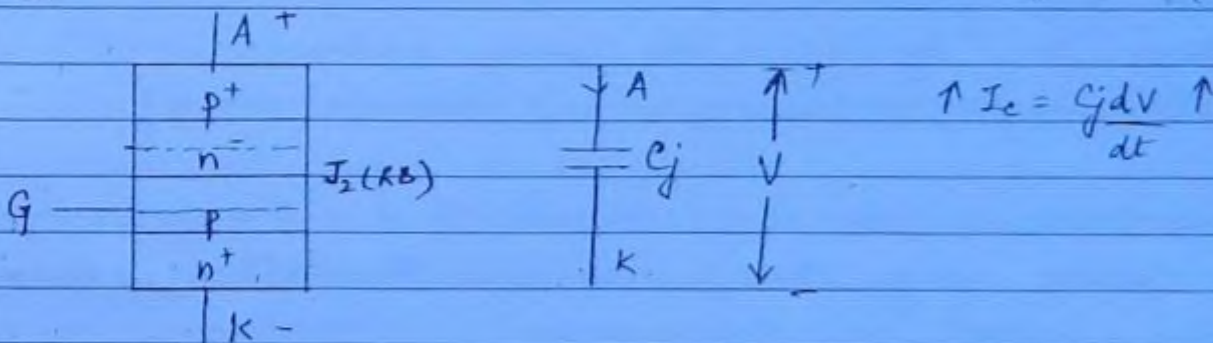 A +
p+
n-
J2 (RB)
G
p
n+
K -
A
Cj
K
+
V
-
↑ Ic = Cj dV/dt ↑